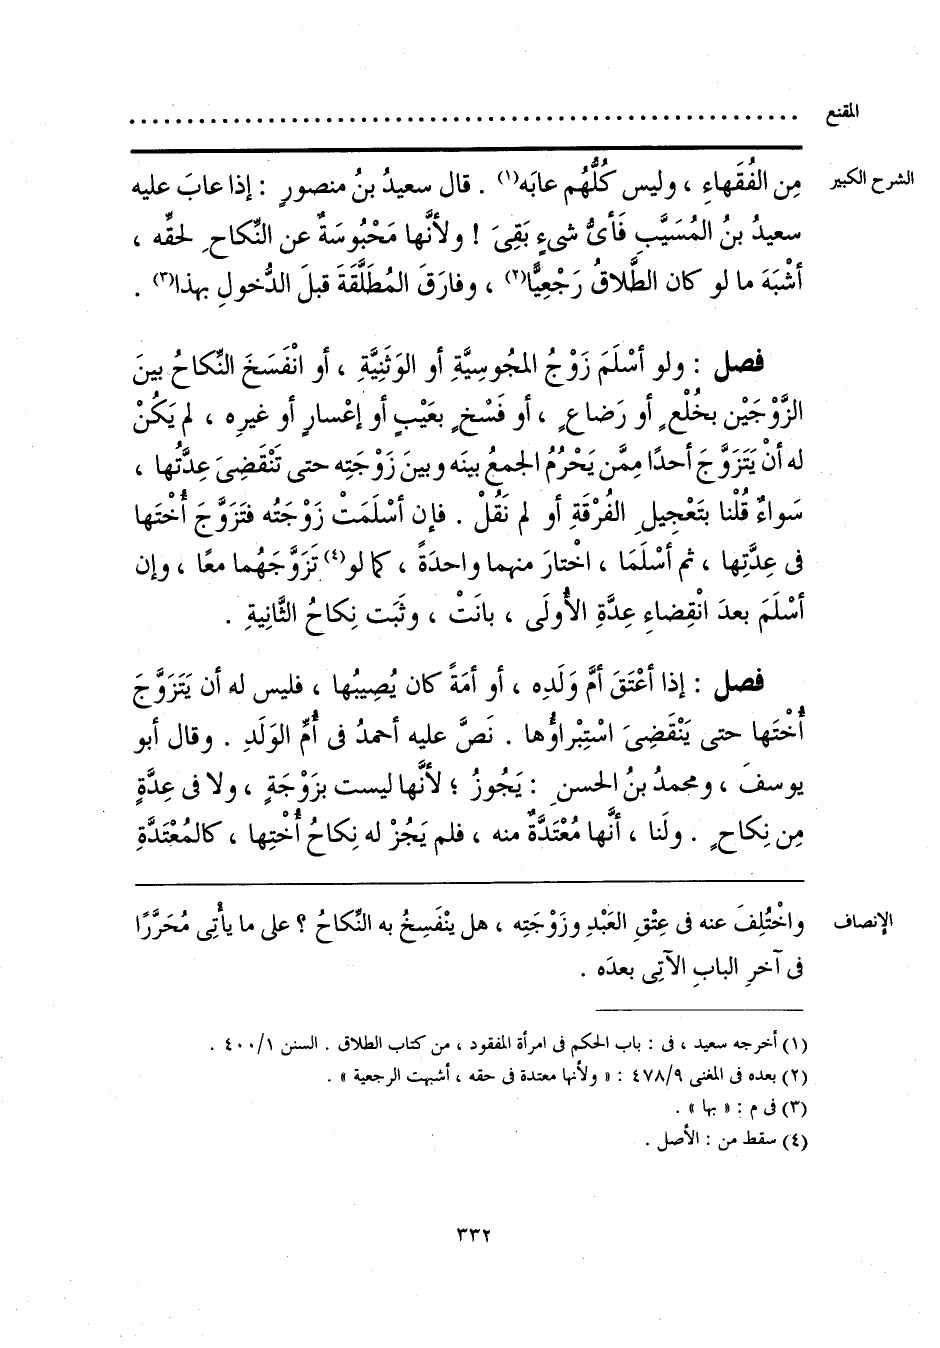 المقنع ..........................................................
الشرح الكبير مِن الفُقَهاءِ ، وليس كُلُّهُم عابَه(١) . قال سعيدُ بنُ منصورٍ : إذا عابَ عليه
سعيدُ بنُ المُسَيَّبِ فَأىُّ شىءٍ بَقِىَ ! ولأنَّها مَحْبُوسَةٌ عن النِّكاحِ لحقِّه ،
أشْبَهَ ما لو كان الطَّلاقُ رَجْعِيًّا(٢) ، وفارَقَ المُطَلَّقَةَ قبلَ الدُّخولِ بهذا(٣) .
فصل : ولو أسْلَمَ زَوْجُ المجُوسِيَّةِ أو الوَثَنِيَّةِ ، أو انْفَسَخَ النِّكاحُ بينَ
الزَّوْجَيْن بخُلْعٍ أو رَضاعٍ ، أو فَسْخٍ بعَيْبٍ أو إعْسارٍ أو غيرِه ، لم يَكُنْ
له أنْ يَتَزَوَّجَ أحدًا مِمَّن يَحْرُمُ الجمعُ بينَه وبينَ زَوْجَتِه حتى تَنْقَضِىَ عِدَّتُها ،
سَواءٌ قُلْنا بتَعْجِيلِ الفُرْقَةِ أو لم نَقُلْ . فإن أسْلَمَتْ زَوْجَتُه فتَزَوَّجَ أُخْتَها
فى عِدَّتِها ، ثم أسْلَمَا ، اخْتارَ منهما واحدَةً ، كما لو(٤) تَزَوَّجَهُما معًا ، وإن
أسْلَمَ بعدَ انْقِضاءِ عِدَّةِ الأُولَى ، بانَتْ ، وثَبَت نِكاحُ الثَّانِيةِ .
فصل : إذا أعْتَقَ أُمَّ وَلَدِه ، أو أمَةً كان يُصِيبُها ، فليس له أن يَتَزَوَّجَ
أُخْتَها حتى يَنْقَضِىَ اسْتِبْراؤُها . نَصَّ عليه أحمدُ فى أُمِّ الوَلَدِ . وقال أبو
يوسفَ ، ومحمدُ بنُ الحسنِ : يَجُوزُ ؛ لأنَّها ليست بزَوْجَةٍ ، ولا فى عِدَّةٍ
مِن نِكاحٍ . ولَنا ، أنَّها مُعْتَدَّةٌ منه ، فلم يَجُزْ له نِكاحُ أُخْتِها ، كالمُعْتَدَّةِ
الإنصاف واخْتُلِفَ عنه فى عِتْقِ العَبْدِ وزَوْجَتِه ، هل يَنْفَسِخُ به النِّكاحُ ؟ على ما يأْتِى مُحَرَّرًا
فى آخرِ البابِ الآتِى بعدَه .
(١) أخرجه سعيد ، فى : باب الحكم فى امرأة المفقود ، من كتاب الطلاق . السنن ٤٠٠/١ .
(٢) بعده فى المغنى ٤٧٨/٩ : « ولأنها معتدة فى حقه ، أشبهت الرجعية » .
(٣) فى م : « بها » .
(٤) سقط من : الأصل .
٣٣٢